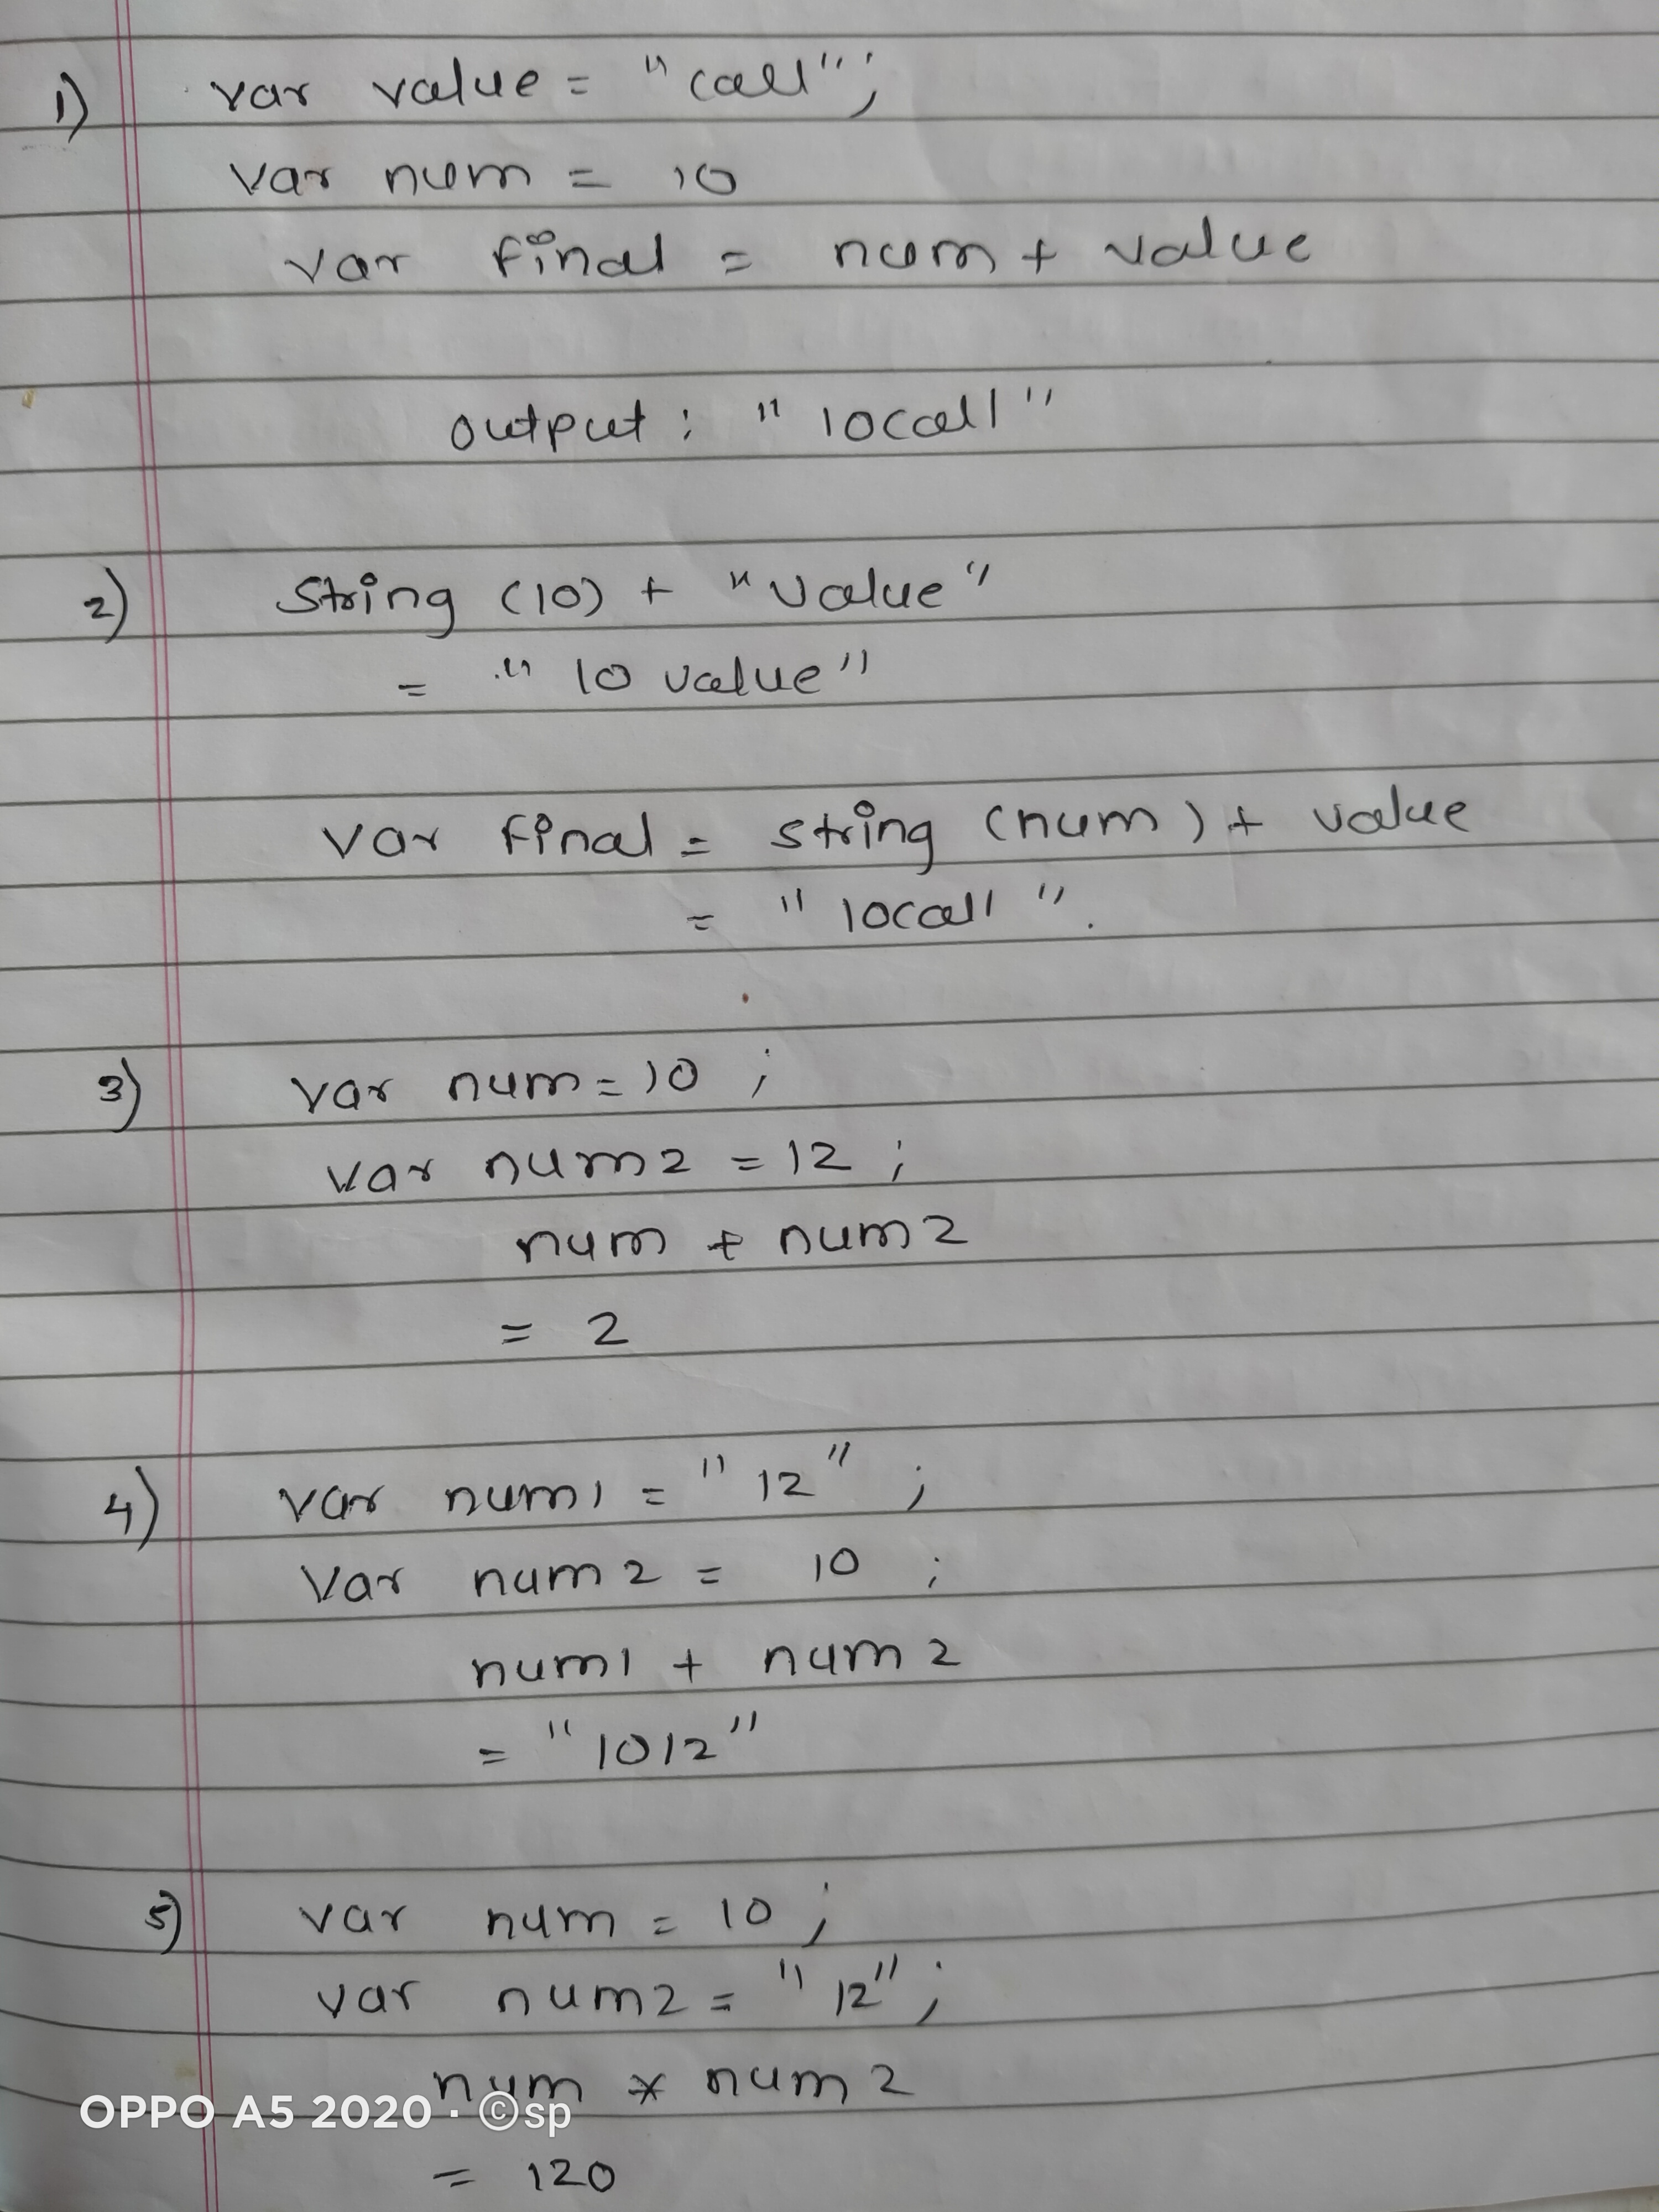 1) var value = "call";
var num = 10
var final = num + value
output : "10call"
2) String (10) + "value"
= "10 value"
var final = string (num) + value
= "10call".
3) var num = 10 ;
var num2 = 12 ;
num + num2
= 2
4) var num1 = "12" ;
var num2 = 10 ;
num1 + num2
= "1012"
5) var num = 10 ;
var num2 = "12" ;
num * num2
OPPO A5 2020 · ©sp
= 120